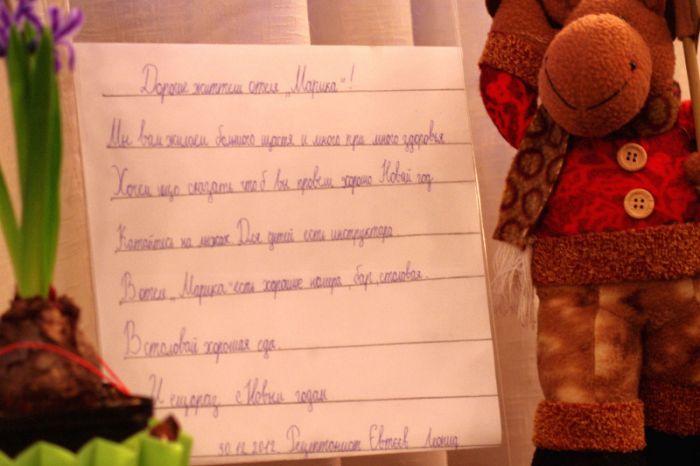 Дорогие жители отеля „Марика"!
Мы вам желаем большого щастя и много при много здоровья
Хочем ищо сказать чтоб вы провели хорошо Новый год
Катайтесь на лыжах. Для детей есть инструктора
В отеле „Марика" есть хорошие номера, бар, столовая.
В столовай хорошая еда.
И ещораз с Новым годам
30.12.2012. Евтеев Леонид